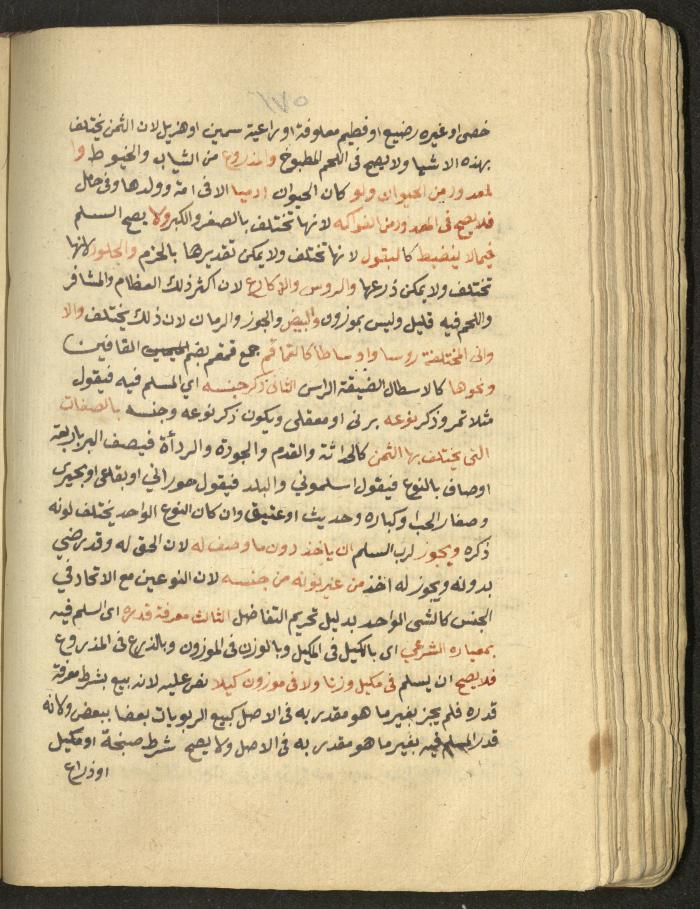 ١٧٥
خصى او غيره رضيع او فطيم معلوفة او راعية سمين او هزيل لان الثمن يختلف
بهذه الاشيا ولا يصح فى اللحم المطبوخ والمذروع من الثياب والخيوط وا
لمعدود من الحيوان ولو كان الحيوان ادميا الا فى امة وولدها وفى حامل
فلا يصح فى المعدود من الفواكه لانها تختلف بالصغر والكبر ولا يصح السلم
فيما لا ينضبط كالبقول لانها تختلف ولا يمكن تقديرها بالحزم والجلود لانها
تختلف ولا يمكن ذرعها والروس والاكارع لان اكثر ذلك العظام والمشافر
واللحم فيه قليل وليس بموزون والبيض والجوز والرمان لان ذلك يختلف والا
وانى المختلفة روسا واوساطا كالقماقم جمع قمقم بضم القافين
ونحوها كالاسطال الضيقة الراس الثانى ذكر جنسه اي المسلم فيه فيقول
مثلا تمر وذكر نوعه برنى او معقلى ويكون ذكر نوعه وجنسه بالصفات
التى يختلف بها الثمن كالحداثة والقدم والجودة والردأة فيصف البر باربعة
اوصاف بالنوع فيقول سلموني والبلد فيقول حوراني او بقاعى او بحيرى
وصغار الحب او كباره وحديث او عتيق وان كان النوع الواحد يختلف لونه
ذكره ويجوز لرب السلم ان ياخذ دون ما وصف له لان الحق له وقد رضي
بدونه ويجوز له اخذ من غير نوعه من جنسه لان النوعين مع الاتحاد في
الجنس كالشى الواحد بدليل تحريم التفاضل الثالث معرفة قدره اى المسلم فيه
بمعياره الشرعي اى بالكيل فى المكيل وبالوزن فى الموزون وبالذرع فى المذروع
فلا يصح ان يسلم فى مكيل وزنا ولا فى موزون كيلا نص عليه لانه بيع يشترط معرفة
قدره فلم يجز بغير ما هو مقدر به فى الاصل كبيع الربويات بعضا ببعض ولانه
قدر المسلم فيه بغير ما هو مقدر به فى الاصل ولا يصح شرط صنجة او مكيل
او ذراع